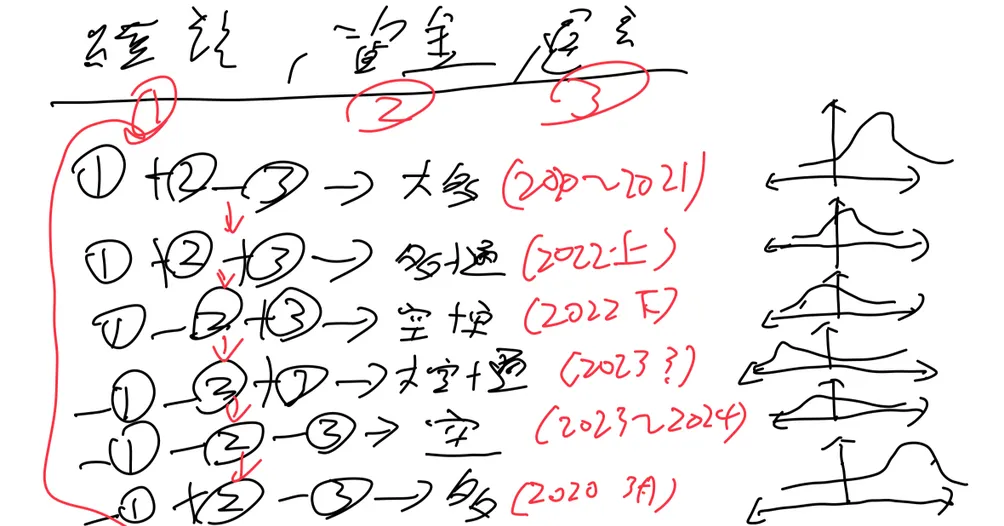 經 , 資金 ,
① ② ③
① +② -③ → 大多 (2020~2021)
① +② +③ → 多+通 (2022上)
① -② +③ → 空+ (2022下)
-① -③ +② → 大空+通 (2023?)
-① -② -③ → 空 (2023~2024)
-① +② -③ → 多 (2020 3月)